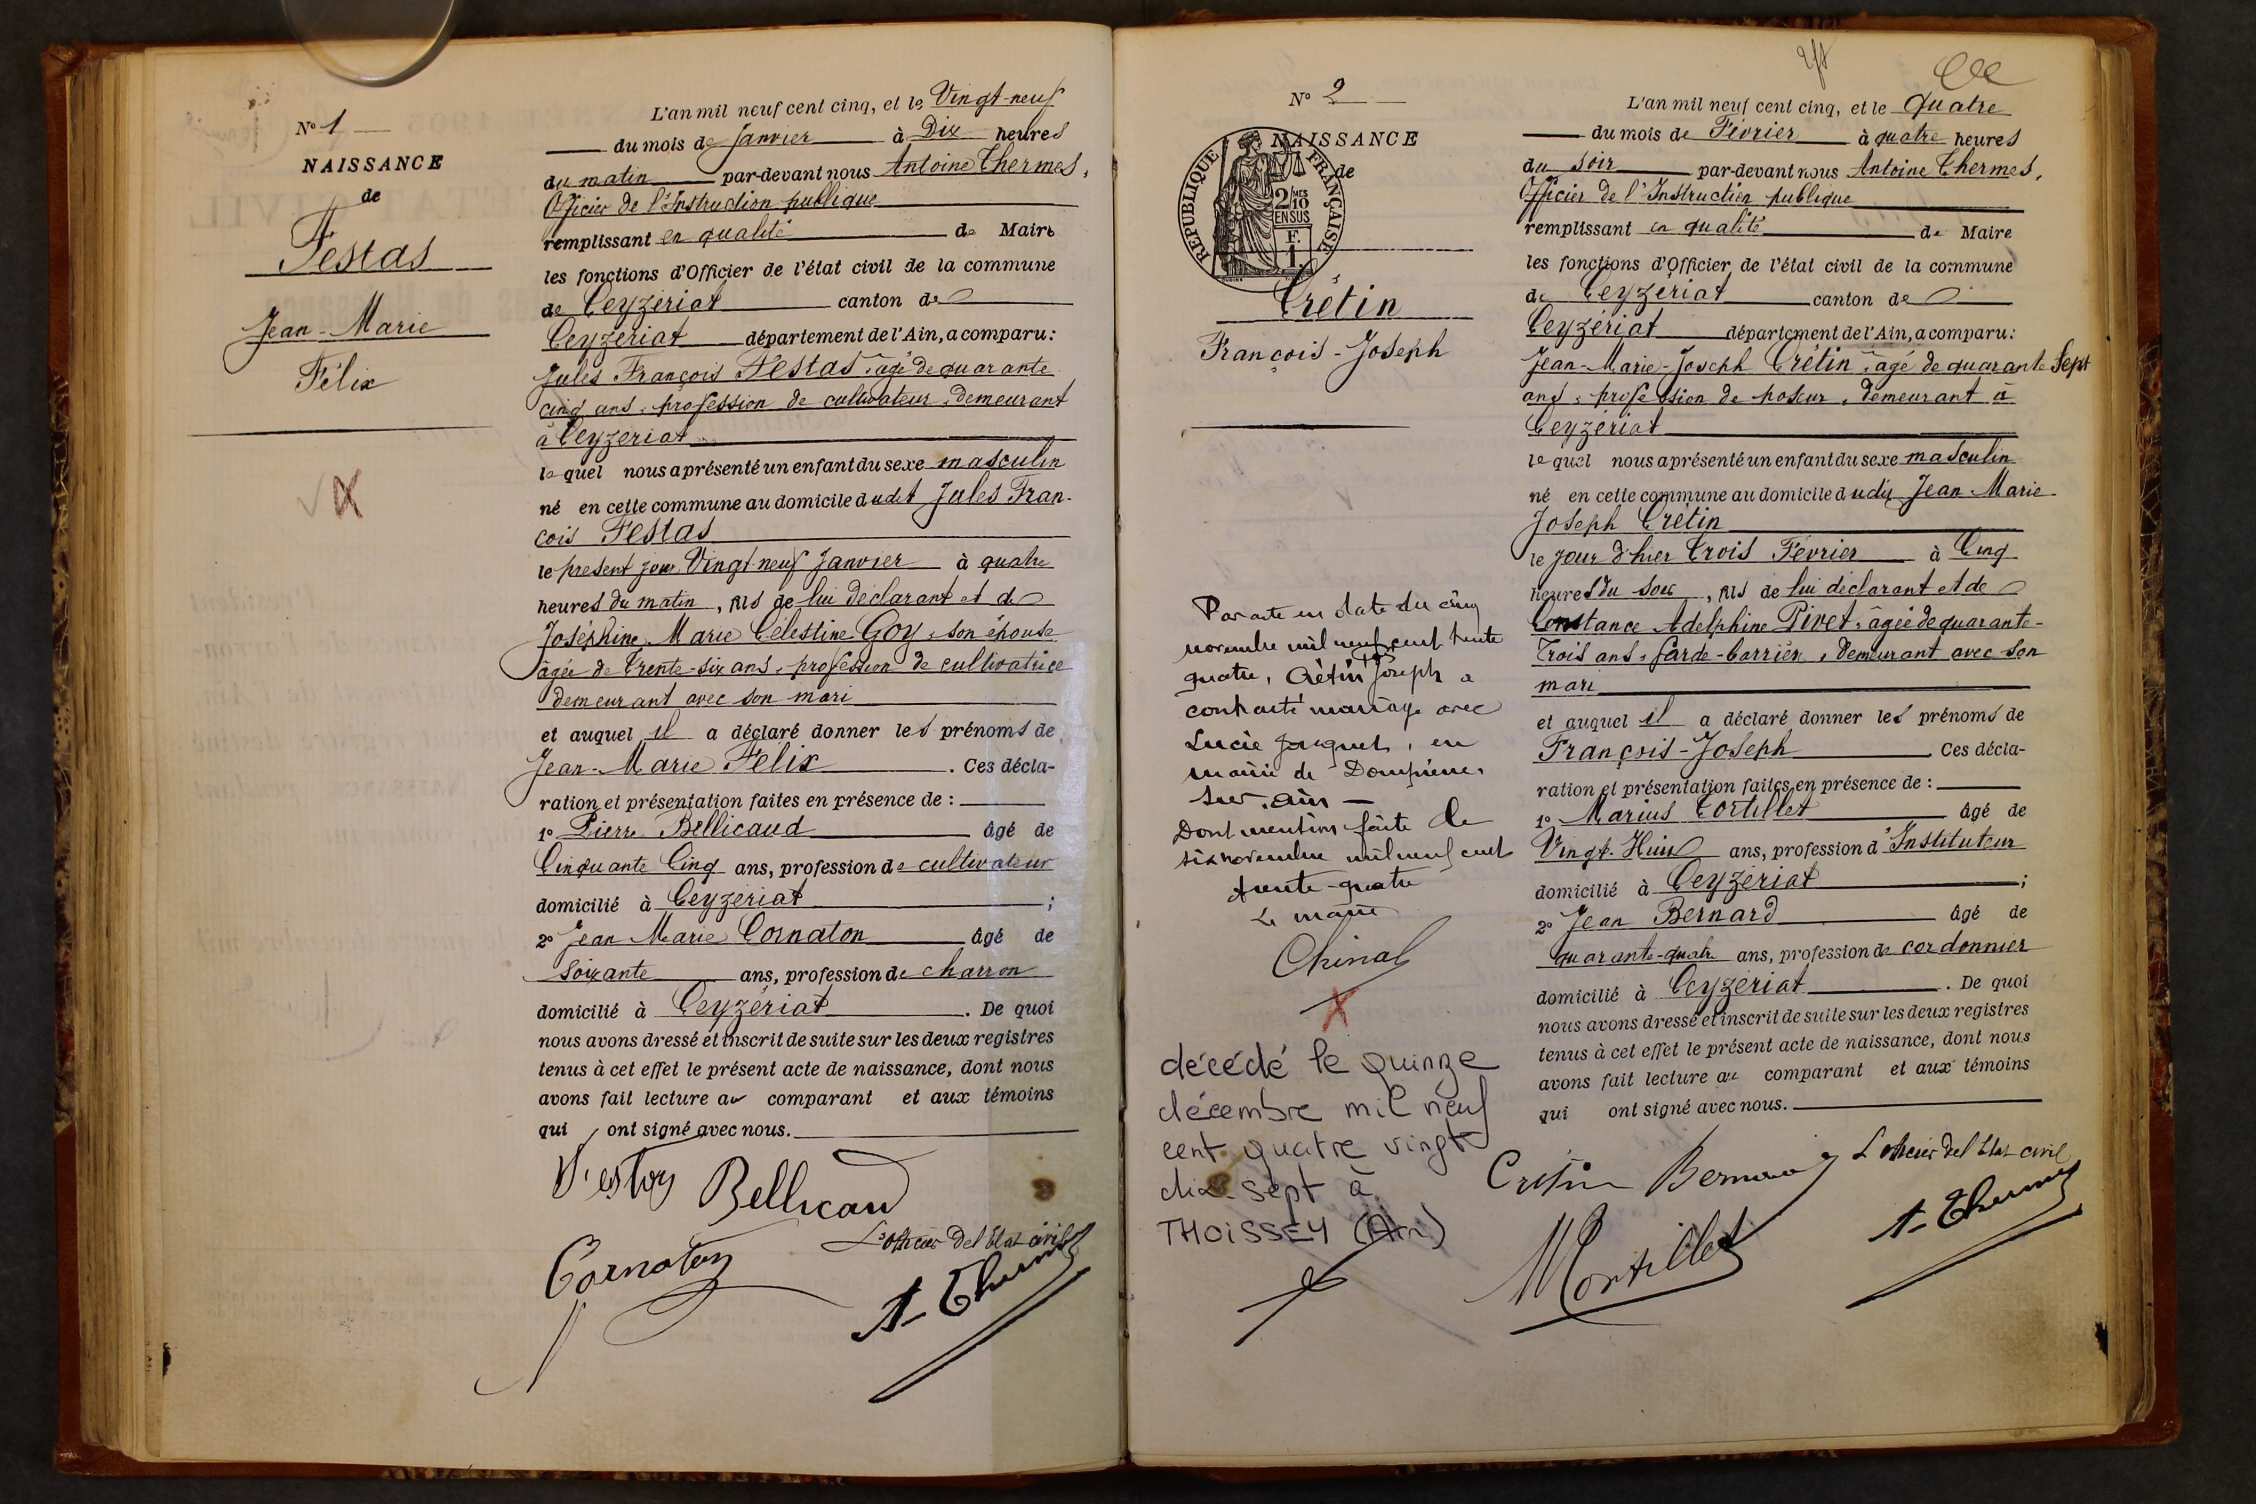 N° 1
NAISSANCE
de
Festas
Jean-Marie
Félix
L'an mil neuf cent cinq, et le Vingt-neuf
du mois de Janvier à Dix heures
du matin par-devant nous Antoine Thermes,
Officier de l'Instruction publique
remplissant en qualité de Maire
les fonctions d'Officier de l'état civil de la commune
de Ceyzériat canton de
Ceyzériat département de l'Ain, a comparu:
Jules François Festas, âgé de quarante
cinq ans, profession de cultivateur, demeurant
à Ceyzériat
lequel nous a présenté un enfant du sexe masculin
né en cette commune au domicile dudit Jules Fran-
cois Festas
le présent jour Vingt-neuf Janvier à quatre
heures du matin, fils de lui déclarant et de
Joséphine Marie Célestine Goy, son épouse
âgée de Trente-six ans, profession de cultivatrice
demeurant avec son mari
et auquel il a déclaré donner les prénoms de
Jean-Marie Félix. Ces décla-
ration et présentation faites en présence de:
1° Pierre Bellicaud âgé de
Cinquante Cinq ans, profession de cultivateur
domicilié à Ceyzériat;
2° Jean Marie Cornaton âgé de
soixante ans, profession de charron
domicilié à Ceyzériat. De quoi
nous avons dressé et inscrit de suite sur les deux registres
tenus à cet effet le présent acte de naissance, dont nous
avons fait lecture au comparant et aux témoins
qui ont signé avec nous.
Festas Bellicaud
L'officier del'Etat civil
Cornaton
A. Thermes
N° 2
NAISSANCE
de
REPUBLIQUE FRANÇAISE
2/10
EN SUS
F.
1.
Crétin
François-Joseph
Par acte en date du cinq
novembre mil neuf cent trente
quatre, Crétin Fçois Joseph a
contracté mariage avec
Lucie Janguet, en
mairie de Dompierre,
sur, ain
Dont mention faite le
six novembre mil neuf cent
trente-quatre
Le maire
Chinal
décédé le quinze
décembre mil neuf
cent quatre vingt
dix-sept à
THOISSEY (Ain)
L'an mil neuf cent cinq, et le quatre
du mois de Février à quatre heures
du soir par-devant nous Antoine Thermes,
Officier de l'Instruction publique
remplissant en qualité de Maire
les fonctions d'Officier de l'état civil de la commune
de Ceyzériat canton de
Ceyzériat département de l'Ain, a comparu:
Jean-Marie-Joseph Crétin, âgé de quarante Sept
ans, profession de poseur, demeurant à
Ceyzériat
lequel nous a présenté un enfant du sexe masculin
né en cette commune au domicile dudit Jean Marie-
Joseph Crétin
le jour d'hier Trois Février à Cinq
heures du soir, fils de lui déclarant et de
Constance Adelphine Pivet, âgée de quarante-
Trois ans, Garde-barrière, demeurant avec son
mari
et auquel il a déclaré donner les prénoms de
François-Joseph Ces décla-
ration et présentation faites en présence de:
1° Marius Tortillet âgé de
Vingt-Huit ans, profession d'Instituteur
domicilié à Ceyzériat;
2° Jean Bernard âgé de
quarante-quatre ans, profession de cordonnier
domicilié à Ceyzériat. De quoi
nous avons dressé et inscrit de suite sur les deux registres
tenus à cet effet le présent acte de naissance, dont nous
avons fait lecture au comparant et aux témoins
qui ont signé avec nous.
L'officier del'Etat civil
Crétin Bernard
A. Thermes
M Tortillet